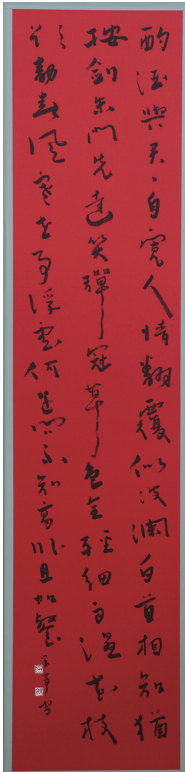 酌酒與君々自寬人情翻覆似波瀾白首相知猶
按劍朱門先達笑彈冠草色全經細雨濕花枝
欲動春風寒世事浮雲何足問不如高臥且加餐
書